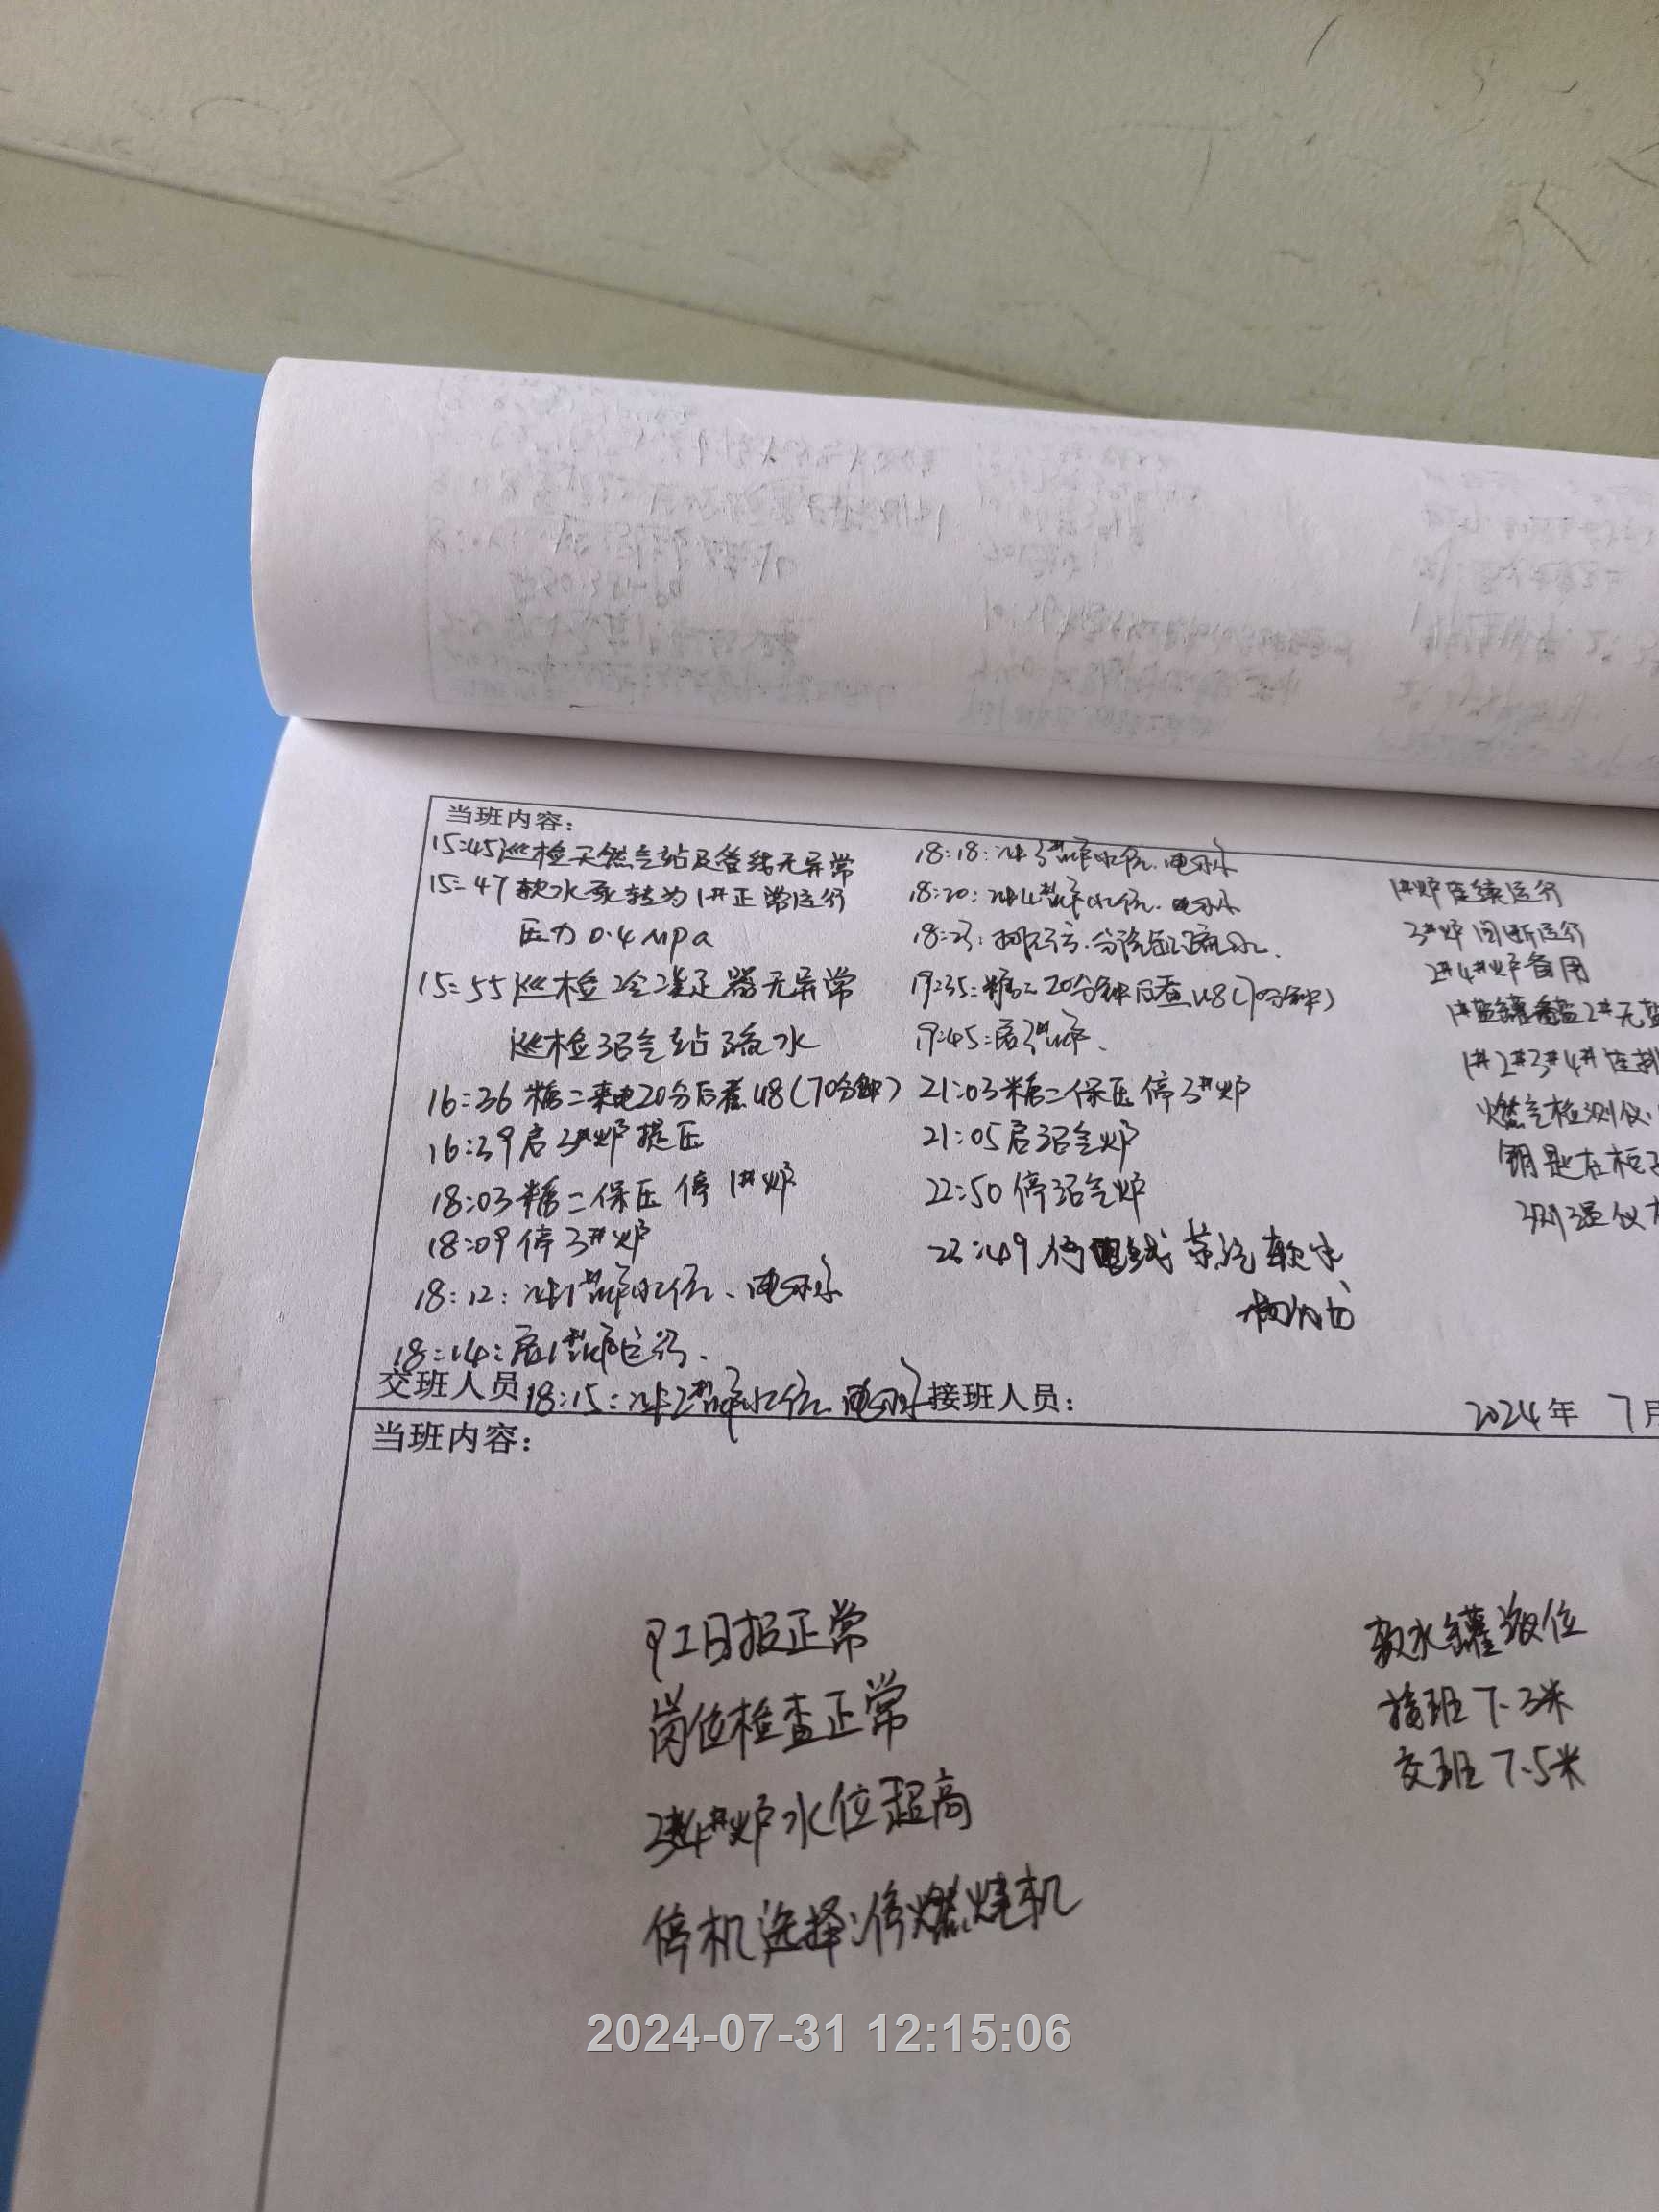 当班内容：
15:45巡检天然气站及管线无异常
15:47软水泵转为1#正常运行
压力0.4MPa
15:55巡检冷凝器无异常
巡检沼气站疏水
16:36糖二来电20分后煮48(70分钟)
16:39启3#炉提压
18:03糖二保压停1#炉
18:09停3#炉
18:12:冲1#炉水位、电
18:14:启1#炉运行.
18:15:冲2#炉水位、电
18:18:冲3#炉水位、电
18:20:冲4#炉水位、电
18:23:排污、分汽缸疏水.
19:35:糖二20分钟后煮48(70分钟)
19:45:启3#炉、
21:03糖二保压停3#炉
21:05启沼气炉
22:50停沼气炉
23:49 蒸汽软水
1#炉连续运行
3#炉间断运行
2#4#炉备用
1#盐罐 2#无
1#2#3#4#连排
燃气检测仪
钥匙在柜
测温仪
交班人员
接班人员：
2024年 7月
当班内容：
日报正常
岗位检查正常
炉水位超高
停机选择:停燃烧机
软水罐液位
接班7.3米
交班7.5米
2024-07-31 12:15:06